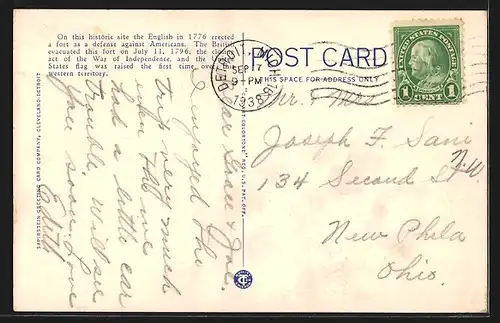 On this historic site the English in 1776 erected
a fort as a defense against Americans. The British
evacuated this fort on July 11, 1796, the closing
act of the War of Independence, and the United
States flag was raised for the first time, over
western territory.
POST CARD
THIS SPACE FOR ADDRESS ONLY
DETROIT, MICH.
SEP 17
9 PM
1938
UNITED STATES POSTAGE
1 CENT 1
SAPIRSTEIN GREETING CARD COMPANY, CLEVELAND-DETROIT
Dear Grace & Joe.
Enjoyed the
trip very much
John & me
had a little car
trouble, will see
you soon Love
Edith
Mr. & Mrs
Joseph F. Sani
134 Second St. N.W
New Phila
Ohio.